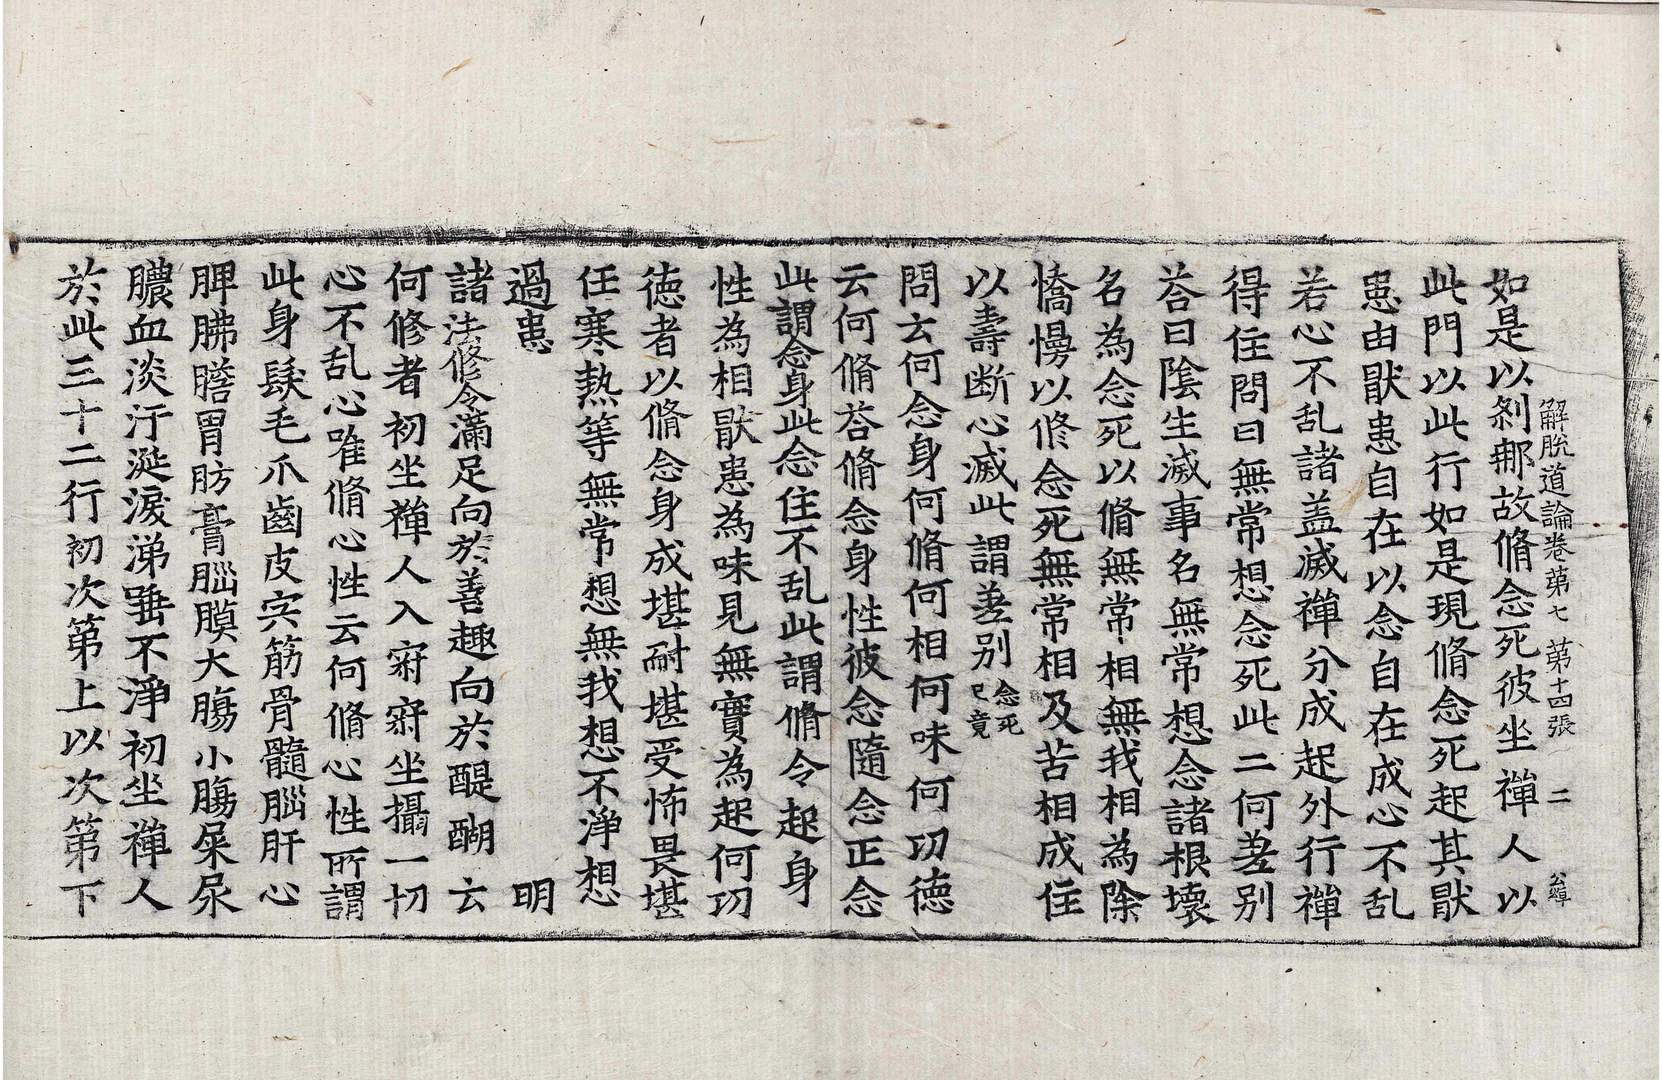 解脫道論卷第七 第十四張 二
如是以剎那故脩念死彼坐禪人以
此門以此行如是現脩念死起其猒
患由猒患自在以念自在成心不乱
若心不乱諸盖滅禪分成起外行禪
得住問曰無常想念死此二何差别
荅曰陰生滅事名無常想念諸根壞
名為念死以脩無常相無我相為除
憍慢以修念死無常相及苦相成住
以壽断心滅此謂差别念死已竟
問云何念身何脩何相何味何功德
云何脩荅脩念身性彼念隨念正念
此謂念身此念住不乱此謂脩令起身
性為相猒患為味見無實為起何功
徳者以脩念身成堪耐堪受怖畏堪
任寒熱等無常想無我想不淨想
過患 明
諸法修令滿足向於善趣向於醍醐 云
何修者初坐禪人入寂寂坐攝一切
心不乱心唯脩心性云何脩心性所謂
此身髮毛爪齒皮宍筋骨髓腦肝心
脾胇膽胃肪膏腦膜大膓小膓屎尿
膿血淡汗涎淚涕唾不淨初坐禪人
於此三十二行初次第上以次第下